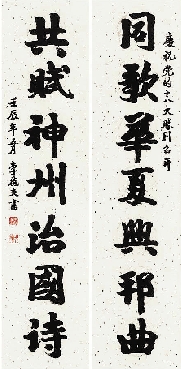 慶祝党的十八大勝利召開
同歌華夏興邦曲
共賦神州治國詩
壬辰年